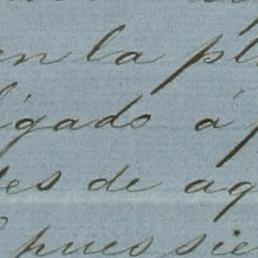 en la pl
ligado á p
des de ag
pues sie